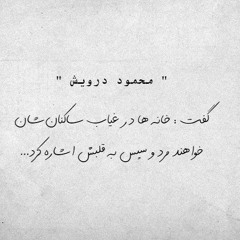 " محمود درویش "
گفت : خانه ها در غیاب ساکنان شان
خواهند مرد و سپس به قلبش اشاره کرد...